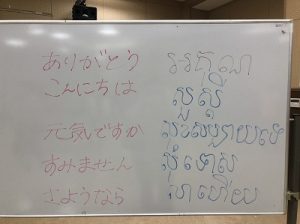 ありがとう អរគុណ
こんにちは សួស្តី
元気ですか សុខសប្បាយទេ
すみません សុំទោស
さようなら លាហើយ